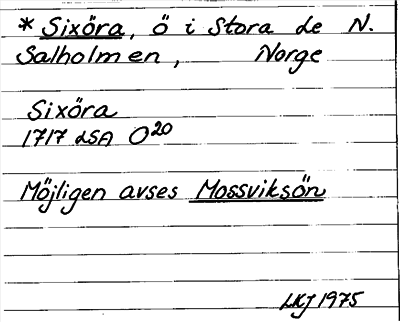 * Sixöra, ö i Stora Le N.
Salholmen, Norge
Sixöra
1717 LSA O20
Möjligen avses Mossviksön
LKJ 1975